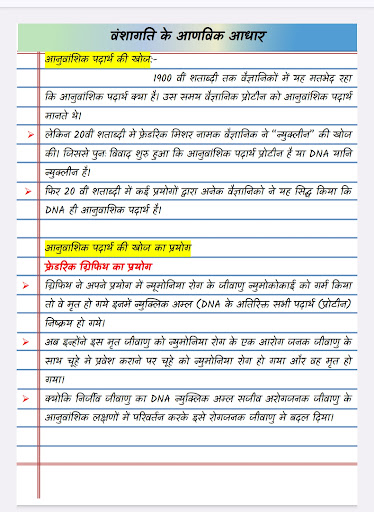 वंशागति के आणविक आधार
आनुवांशिक पदार्थ की खोज:-
1900 वी शताब्दी तक वैज्ञानिकों में यह मतभेद रहा
कि आनुवांशिक पदार्थ क्या है। उस समय वैज्ञानिक प्रोटीन को आनुवांशिक पदार्थ
मानते थे।
➢ लेकिन 20वी शताब्दी में फ्रेडरिक मिशर नामक वैज्ञानिक ने “न्युक्लीन” की खोज
की। जिससे पुनः विवाद शुरु हुआ कि आनुवांशिक पदार्थ प्रोटीन है या DNA यानि
न्युक्लीन है।
➢ फिर 20 वी शताब्दी में कई प्रयोगों द्वारा अनेक वैज्ञानिको ने यह सिद्ध किया कि
DNA ही आनुवांशिक पदार्थ है।
आनुवांशिक पदार्थ की खोज का प्रयोग
फ्रेडरिक ग्रिफिथ का प्रयोग
➢ ग्रिफिथ ने अपने प्रयोग में न्यूमोनिया रोग के जीवाणु न्युमोकोकाई को गर्म किया
तो वे मृत हो गये इनमें न्युक्लिक अम्ल (DNA के अतिरिक्त सभी पदार्थ (प्रोटीन)
निष्क्रम हो गये।
➢ अब इन्होंने इस मृत जीवाणु को न्युमोनिया रोग के एक आरोग जनक जीवाणु के
साथ चूहे मे प्रवेश कराने पर चूहे को न्युमोनिया रोग हो गया और वह मृत हो
गया।
➢ क्योकि निर्जीव जीवाणु का DNA न्युक्लिक अम्ल सजीव अरोगजनक जीवाणु के
आनुवांशिक लक्षणों में परिवर्तन करके इसे रोगजनक जीवाणु मे बदल दिया।